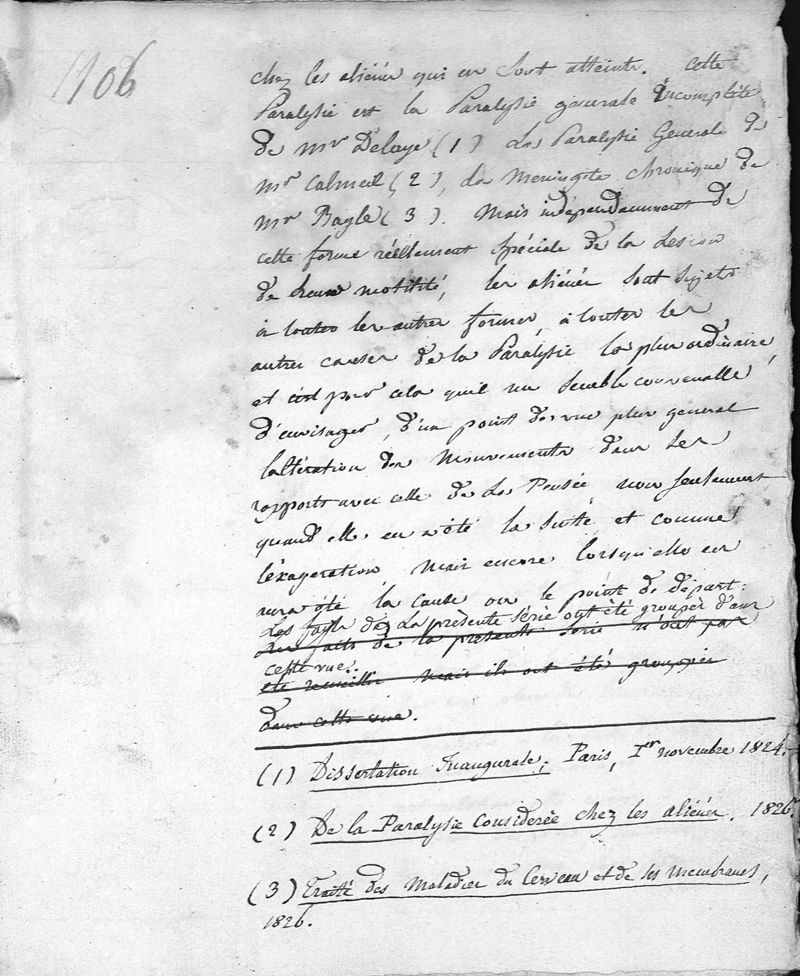 1106
chez les aliénés qui en sont atteints. Cette
Paralysie est la Paralysie générale incomplète
de Mr Delaye (1) La Paralysie Generale de
Mr Calmeil (2), la Meningite chronique de
Mr Bayle (3). Mais indépendamment de
cette forme réellement spéciale de la Lesion
de leur motilité, les aliénés sont sujets
à toutes les autres formes, à toutes les
autres causes de la Paralysie la plus ordinaire,
et c'est pour cela qu'il me semble convenable
d'envisager, d'un point de vue plus general
l'altération des Mouvements dans ses
rapports avec celle de La Pensée non seulement
quand elle en a été la suite et comme
l'exageration mais encore lorsqu'elle en
aura été la cause ou le point de départ:
Les faits de La présente série ont été groupés dans
Les faits de la presente serie n'ont pas
cette vue.
été recueillis mais ils ont été groupés
dans cette vue.
(1) Dissertation Inaugurale; Paris, 1er novembre 1824.
(2) De la Paralysie Considerée chez les aliénés. 1826.
(3) Traité des Maladies du Cerveau et de ses Membranes,
1826.